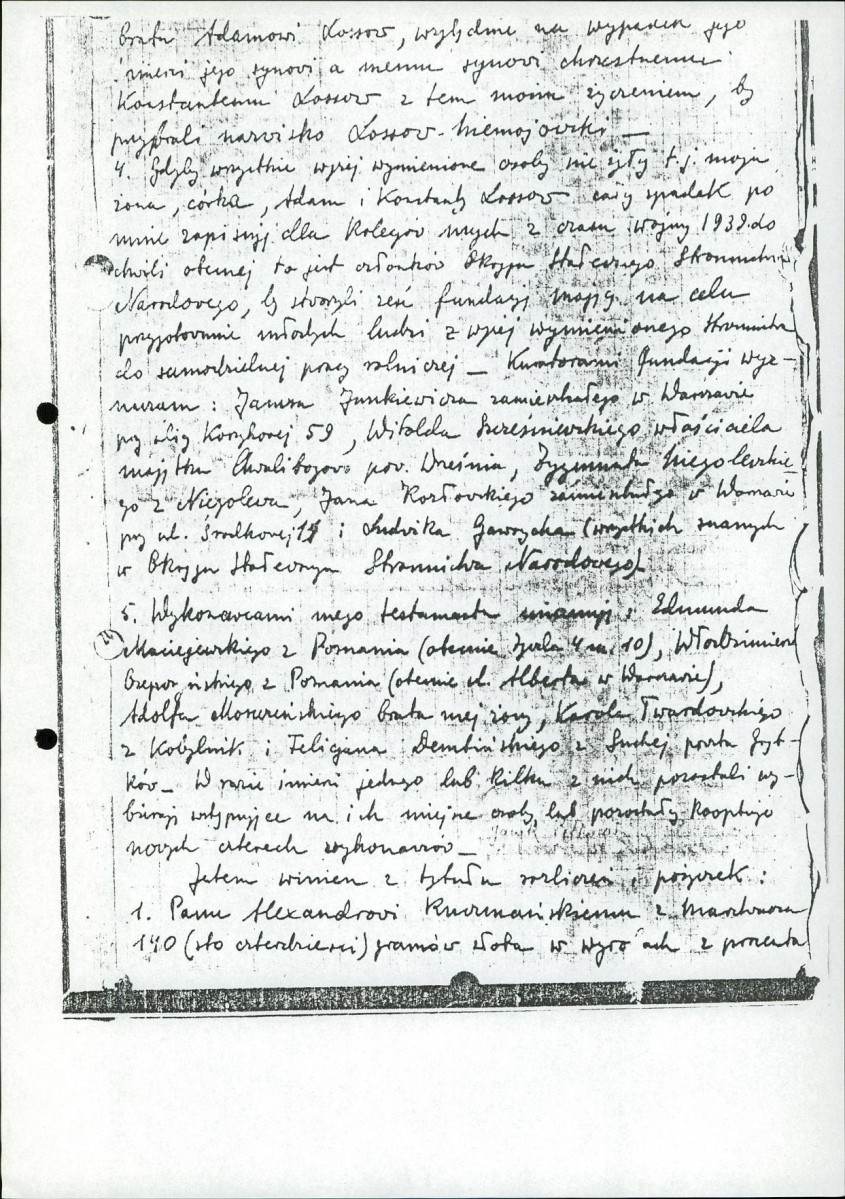 bratu Adamowi Lossow, względnie na wypadek jego
śmierci jego synowi a memu synowi chrzestnemu
Konstantemu Lossow z tem moim życzeniem, by
przybrali nazwisko Lossow-Niemojowski —
4. Gdyby wszystkie wyżej wymienione osoby nie żyły t.j. moja
żona, córka, Adam i Konstanty Lossow cały spadek po
mnie zapisuję dla Kolegów mych z czasu wojny 1939 do
chwili obecnej to jest członków Okręgu Stołecznego Stronnictwa
Narodowego, by stworzyli zeń fundację mającą na celu
przygotowanie młodych ludzi z wyżej wymienionego Stronnictwa
do samodzielnej pracy rolniczej — Kuratorami Fundacji wyz-
naczam: Janusza Jankiewicza zamieszkałego w Warszawie
przy ulicy Koszykowej 59, Witolda Szcześniewskiego właściciela
majątku Chwalibogowo pow. Września, Zygmunta Niegolewskie-
go z Niegolewa, Jana Kozłowskiego zamieszkałego w Warszawie
przy ul. Środkowej i Ludwika Gawrycha (wszystkich znanych
w Okręgu Stołecznym Stronnictwa Narodowego)
5. Wykonawcami mego testamentu mianuję: Edmunda
24
Maciejewskiego z Poznania (obecnie 4 m. 10), Włodzimierza
z Poznania (obecnie ul. Alberta w Warszawie),
Adolfa brata mej żony, Karola Twardowskiego
z Kobylnik i Felicjana Dembińskiego z Suchej poczta
ków — W razie śmierci jednego lub kilku z nich pozostali wy-
bierają wstępujące na ich miejsce osoby, lub pozostały kooptuje
nowych czterech wykonawców —
Jestem winien z tytułu rozliczeń i pożyczek:
1. Panu Alexandrowi z
140 (sto czterdzieści) gramów złota w z procenta